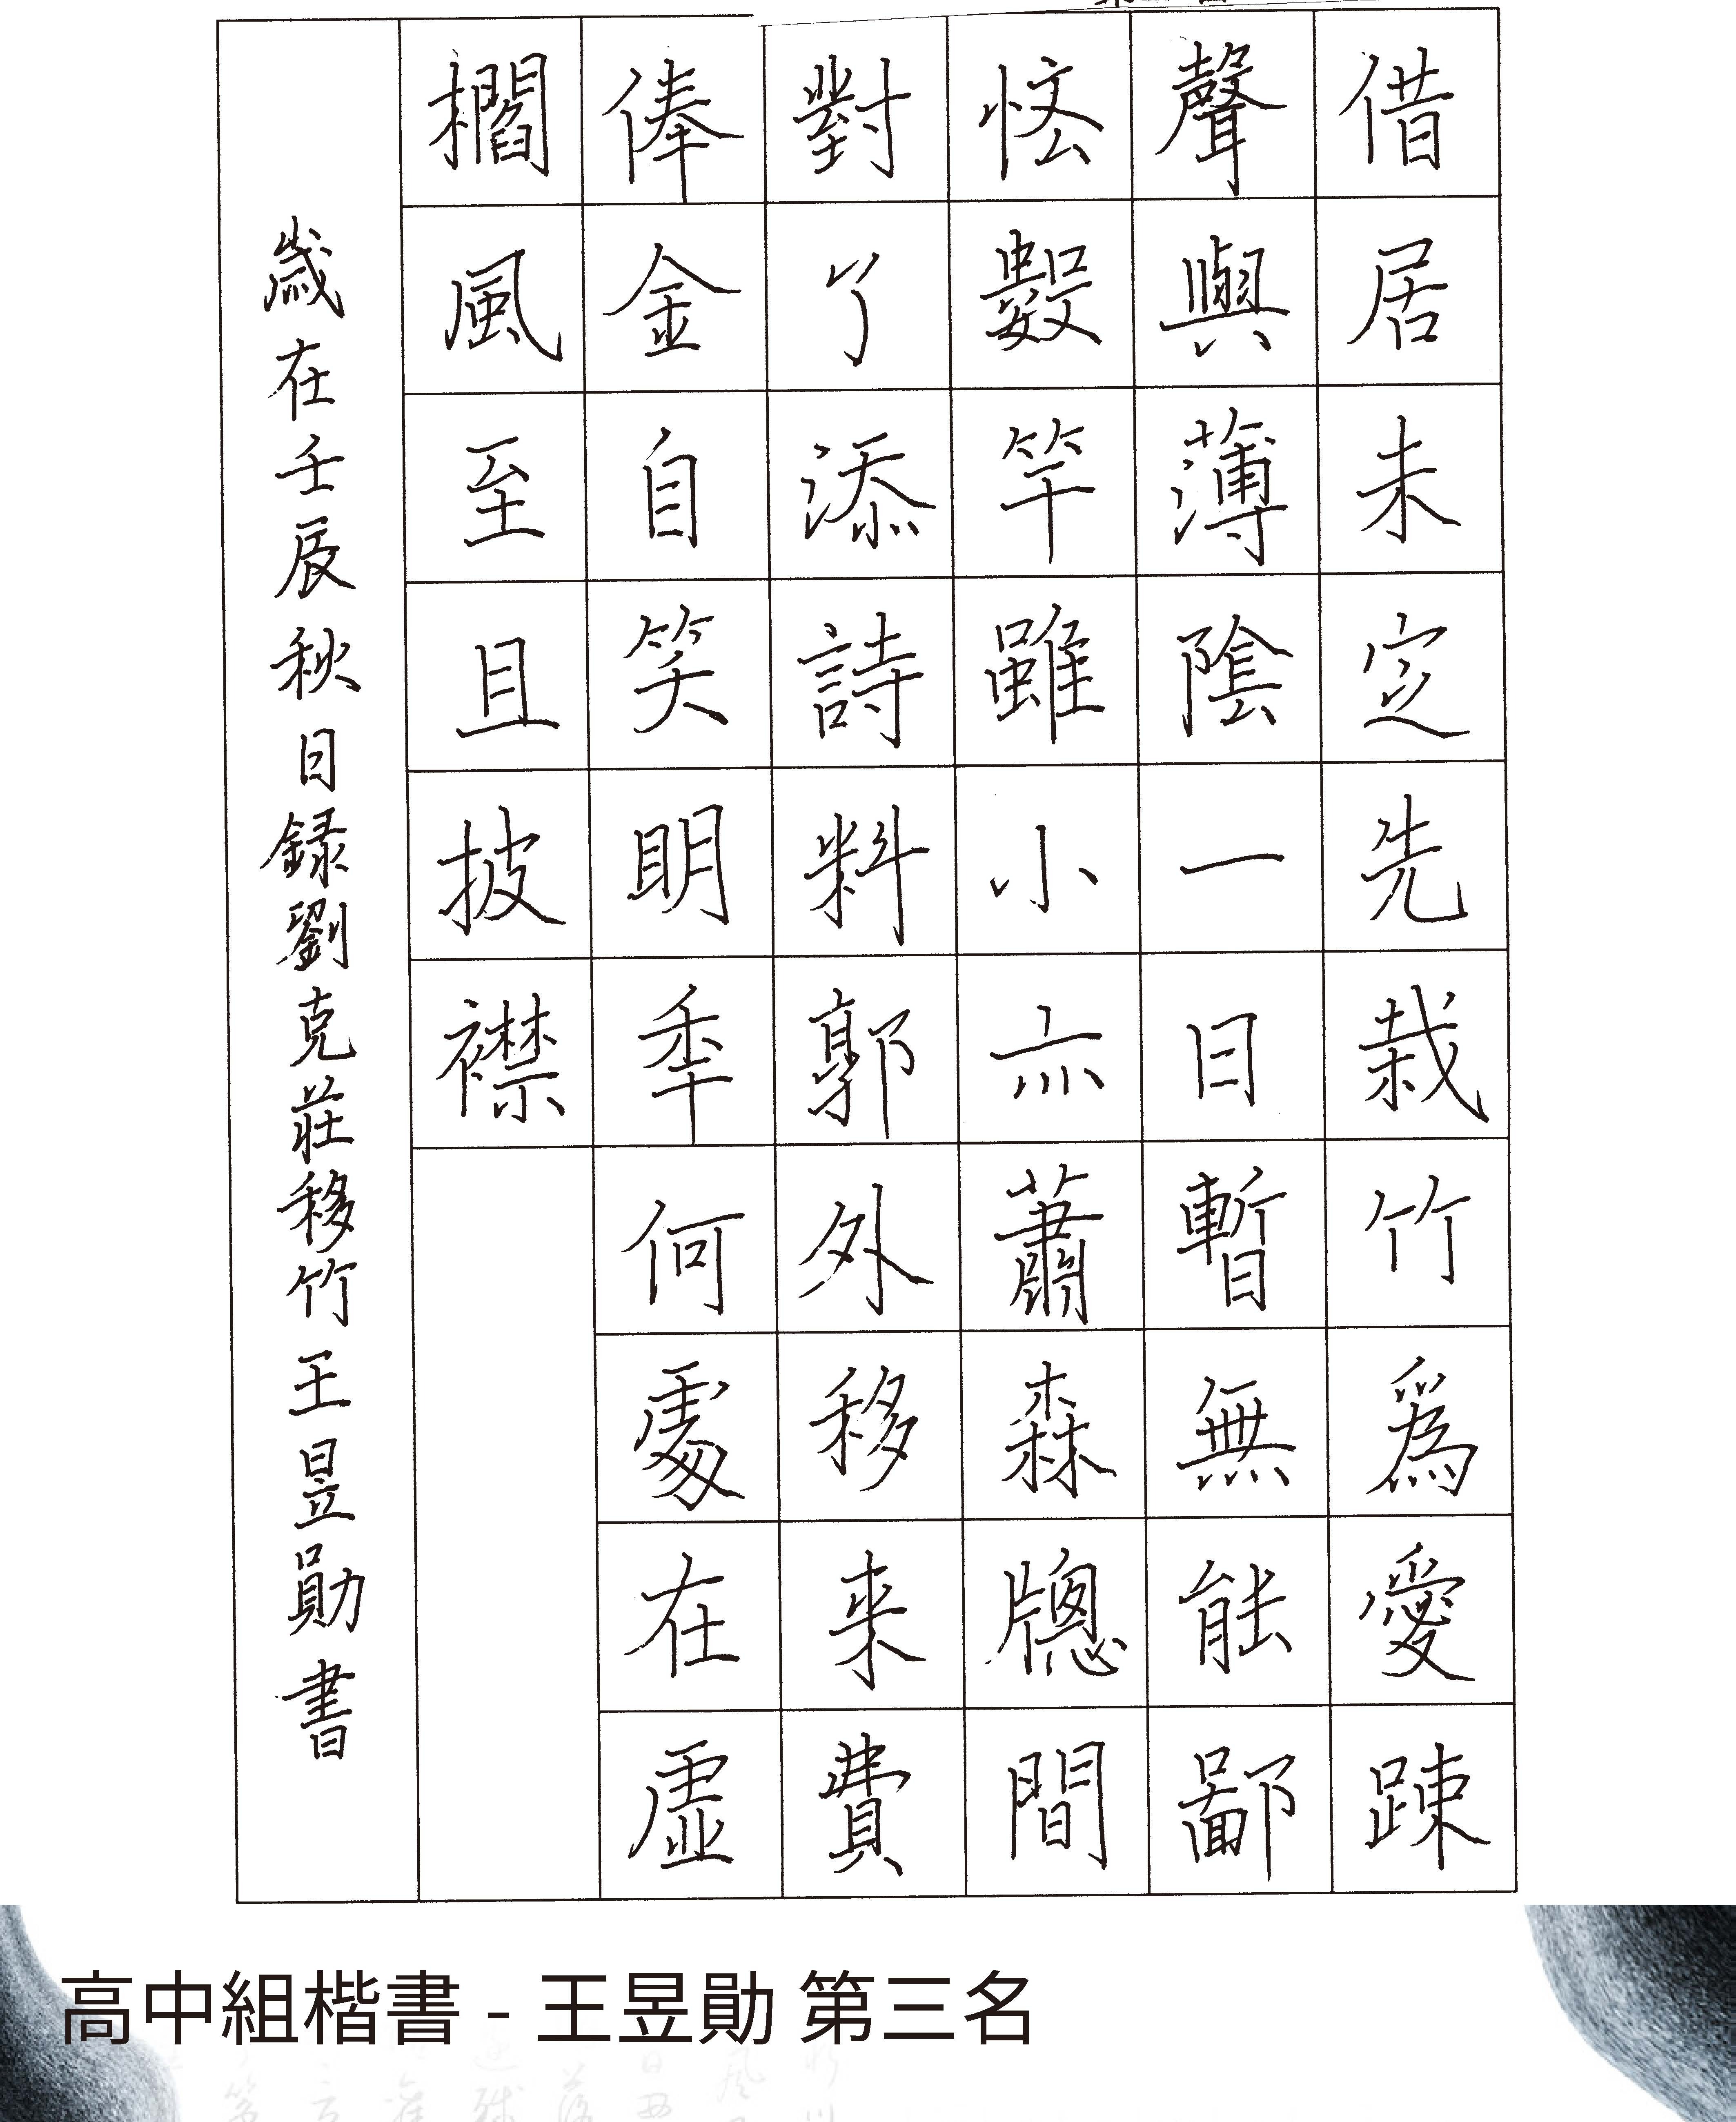 借居未定先栽竹為愛疎
聲與薄陰一日暫無能鄙
恡數竿雖小亦蕭森牕間
對了添詩料郭外移来費
俸金自笑明年何處在虛
櫩風至且披襟
歲在壬辰秋日録劉克莊移竹王昱勛書
高中組楷書 - 王昱勛 第三名